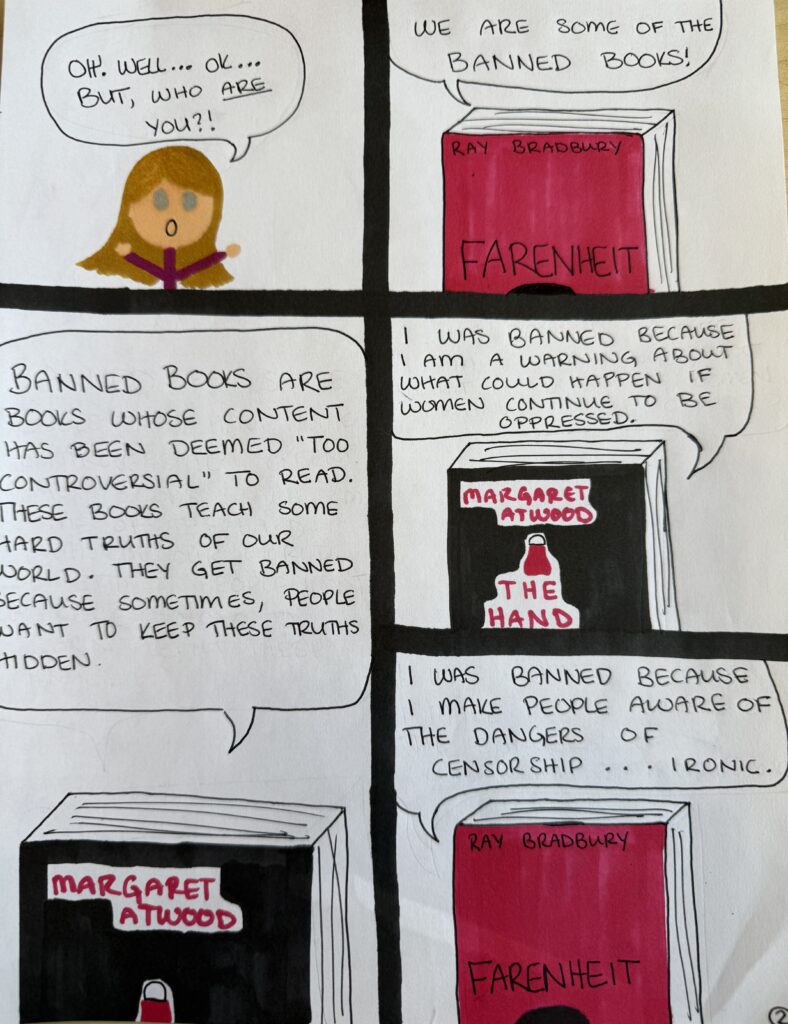 OH! WELL... OK...
BUT, WHO ARE
YOU?!
WE ARE SOME OF THE
BANNED BOOKS!
RAY BRADBURY
FARENHEIT
BANNED BOOKS ARE
BOOKS WHOSE CONTENT
HAS BEEN DEEMED "TOO
CONTROVERSIAL" TO READ.
THESE BOOKS TEACH SOME
HARD TRUTHS OF OUR
WORLD. THEY GET BANNED
BECAUSE SOMETIMES, PEOPLE
WANT TO KEEP THESE TRUTHS
HIDDEN.
MARGARET
ATWOOD
I WAS BANNED BECAUSE
I AM A WARNING ABOUT
WHAT COULD HAPPEN IF
WOMEN CONTINUE TO BE
OPPRESSED.
MARGARET
ATWOOD
THE
HAND
I WAS BANNED BECAUSE
I MAKE PEOPLE AWARE OF
THE DANGERS OF
CENSORSHIP... IRONIC.
RAY BRADBURY
FARENHEIT
2